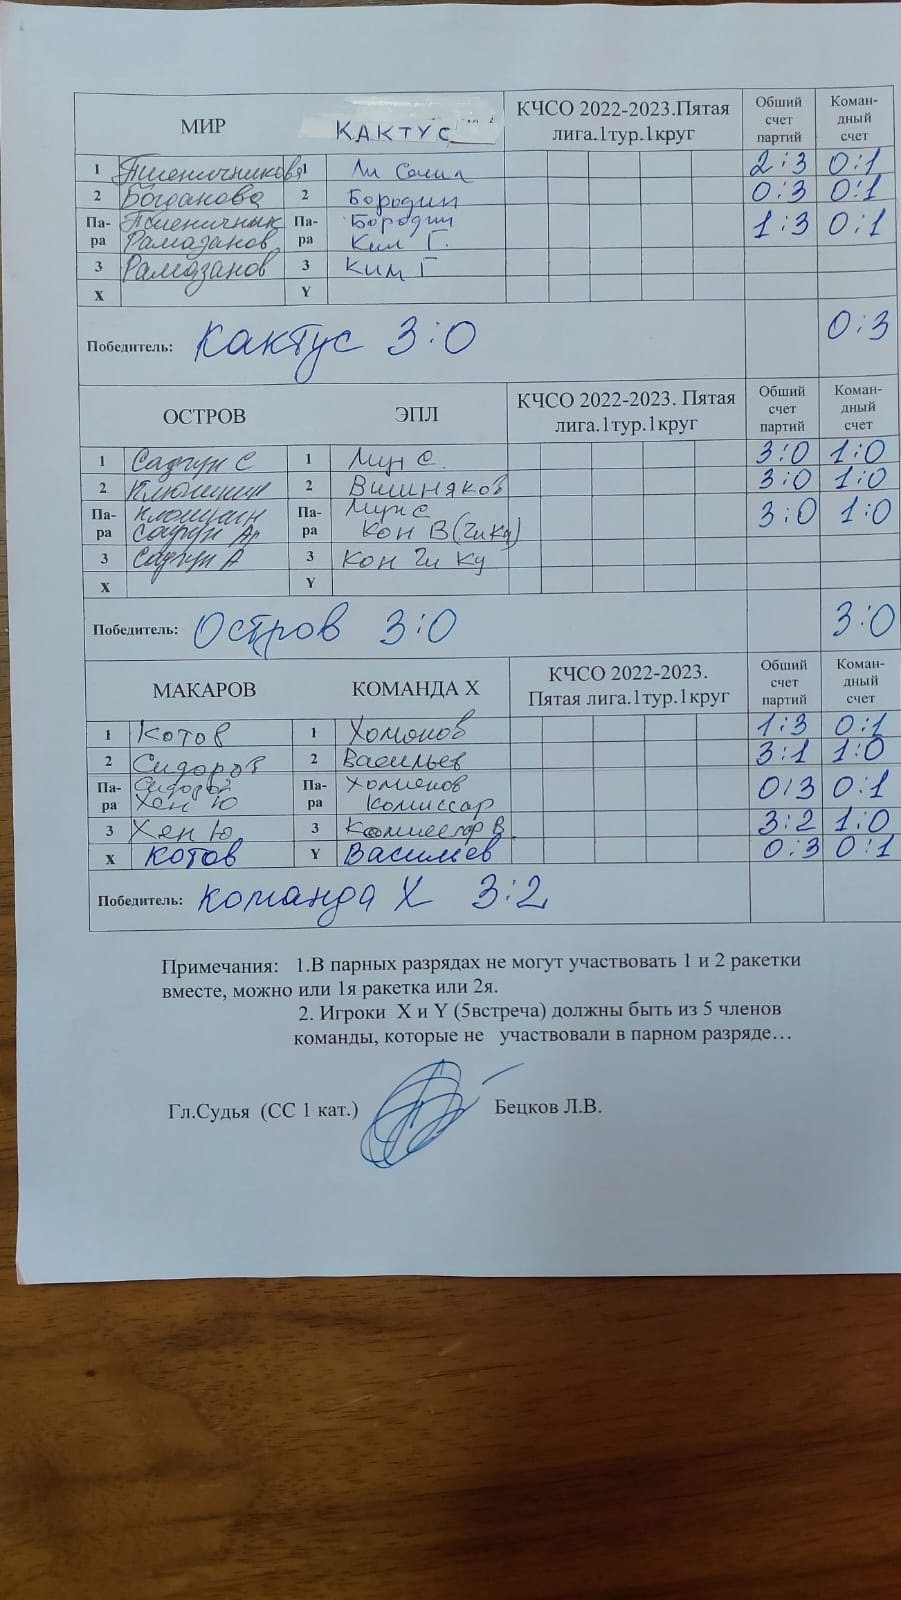 МИР КАКТУС КЧСО 2022-2023.Пятая лига.1тур.1круг Общий счет партий Коман-дный счет
1 Пшеничникова 1 Ли 2:3 0:1
2 Богданова 2 Бородин 0:3 0:1
Па-ра Пшеничник Па-ра Бородин 1:3 0:1
Рамазанов Ким Г.
3 Рамазанов 3 Ким Г
X Y
Победитель: Кактус 3:0 0:3
ОСТРОВ ЭПЛ КЧСО 2022-2023. Пятая лига.1тур.1круг Общий счет партий Коман-дный счет
1 Садгун С 1 Мун С. 3:0 1:0
2 2 Вишняков 3:0 1:0
Па-ра Па-ра Мун С 3:0 1:0
Кон В (Чи Ку)
3 3 Кон Чи Ку
X Y
Победитель: Остров 3:0 3:0
МАКАРОВ КОМАНДА X КЧСО 2022-2023. Пятая лига.1тур.1круг Общий счет партий Коман-дный счет
1 Котов 1 Хоменов 1:3 0:1
2 Сидоров 2 Васильев 3:1 1:0
Па-ра Сидоров Па-ра Хоменов 0:3 0:1
Хен Ю Комиссар
3 Хен Ю 3 Комиссар В. 3:2 1:0
X Котов Y Васильев 0:3 0:1
Победитель: Команда X 3:2
Примечания: 1.В парных разрядах не могут участвовать 1 и 2 ракетки
вместе, можно или 1я ракетка или 2я.
2. Игроки X и Y (5встреча) должны быть из 5 членов
команды, которые не участвовали в парном разряде…
Гл.Судья (СС 1 кат.) Бецков Л.В.